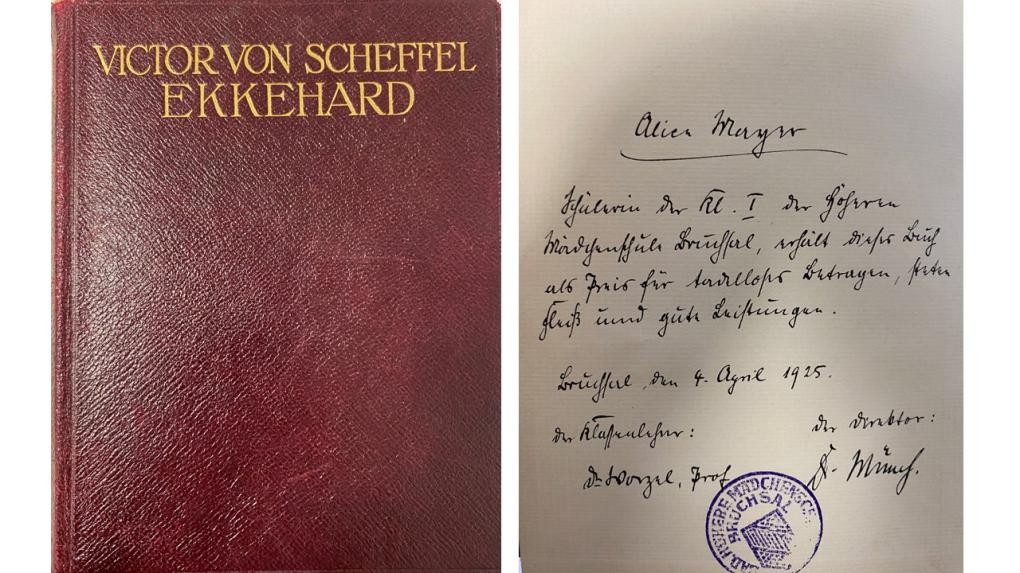 VICTOR VON SCHEFFEL
EKKEHARD
Alice Mayer
Schülerin der Kl. I der Höheren
Mädchenschule Bruchsal, erhält dieses Buch
als Preis für tadelloses Betragen, steten
Fleiß und gute Leistungen.
Bruchsal, den 4. April 1925.
der Klassenlehrer:
der Direktor:
Prof
Münch.
HÖHERE MÄDCHENSCH
BRUCHSAL